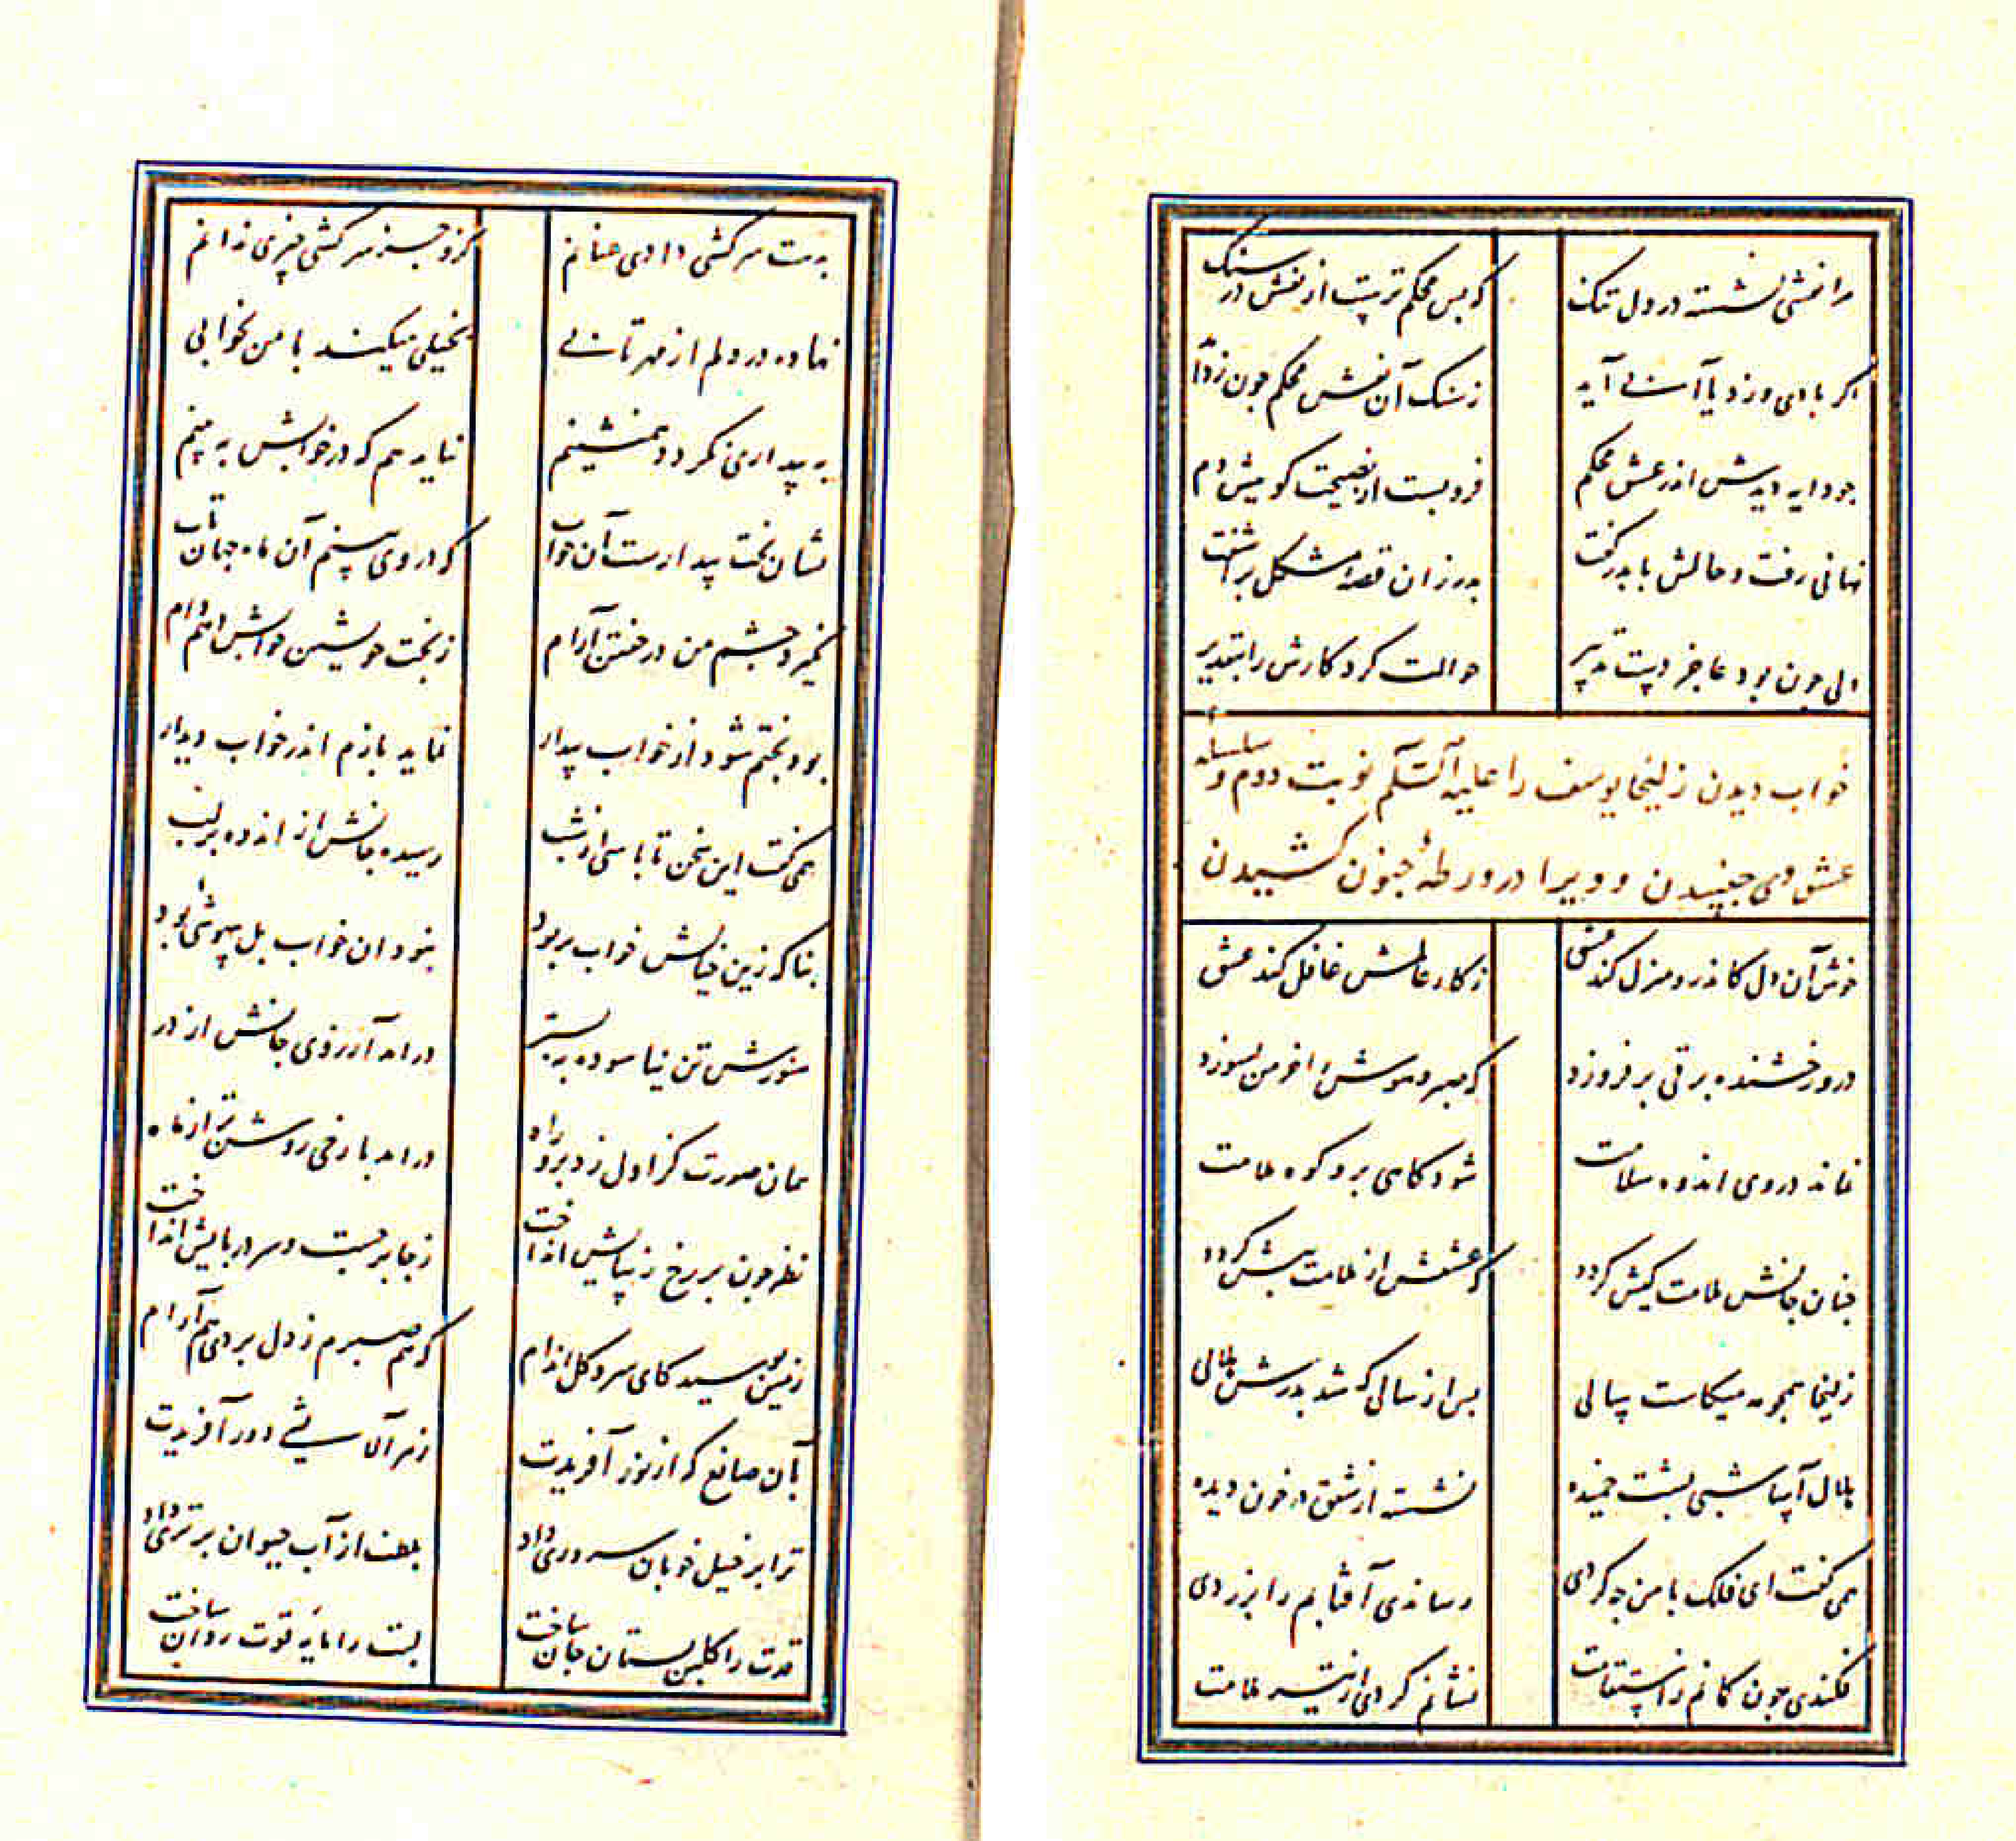 مرا نقشی نشسته در دل تنک
که بس محکم ترست از نقش در سنک
اکر بادی وزد یا آبی آید
ز سنک آن نقش محکم چون زداید
چو دایه دیدش اندر عشق محکم
فرو بست از نصیحت کوییش دم
نهانی رفت و حالش با پدر کفت
پدر زان قصهٔ مشکل برآشفت
ولی چون بود عاجز دست تدبیر
حوالت کرد کارش را بتقدیر
خواب دیدن زلیخا یوسف را علیه السلام نوبت دوم و سلسله
عشق وی جنبیدن و ویرا در ورطهٔ جنون کشیدن
خوش آن دل کاندرو منزل کند عشق
ز کار عالمش غافل کند عشق
درو رخشنده برقی بر فروزد
که صبر و هوش را خرمن بسوزد
نماند در وی اندوه سلامت
شود کاهی برو کوه ملامت
چنان جانش ملامت کیش کردد
که عشقش از ملامت بیش کردد
زلیخا همچو مه میکاست سالی
پس از سالی که شد بدرش هلالی
هلال آسا شبی پشت خمیده
نشسته از شفق در خون دیده
همی کفت ای فلک با من چه کردی
رساندی آفتابم را بزردی
فکندی چون کمانم ز استقامت
نشانم کردی از تیر ملامت
بدست سرکشی دادی عنانم
کزو جز سرکشی چیزی ندانم
نهاده در دلم از مهر تابی
بخیلی میکند با من بخوابی
به بیداری نکردد همنشینم
نیاید هم که در خوابش به بینم
نشان بخت بیدارست آن خواب
که در وی بینم آن ماه جهان تاب
نکیرد چشم من در خفتن آرام
ز بخت خویشتن خوابش دهم وام
بود بختم شود از خواب بیدار
نماید بازم اندر خواب دیدار
همی کفت این سخن تا پاسی از شب
رسیده جانش از اندوه بر لب
بناکه زین خیالش خواب بربود
نبود آن خواب بل بیهوشی بود
هنوزش تن نیاسوده به بستر
درآمد آرزوی جانش از در
همان صورت کز اول زد برو راه
درآمد با رخی روشن تر از ماه
نظر چون بر رخ زیباش انداخت
ز جا برجست و سر در پایش انداخت
زمین بوسید کای سرو کل اندام
که هم صبرم ز دل بردی هم آرام
بآن صانع که از نور آفریدت
ز هر آلایشی دور آفریدت
ترا بر خیل خوبان سروری داد
بلطف از آب حیوان برتری داد
قدت را کلبن بستان جان ساخت
لبت را مایهٔ قوت روان ساخت